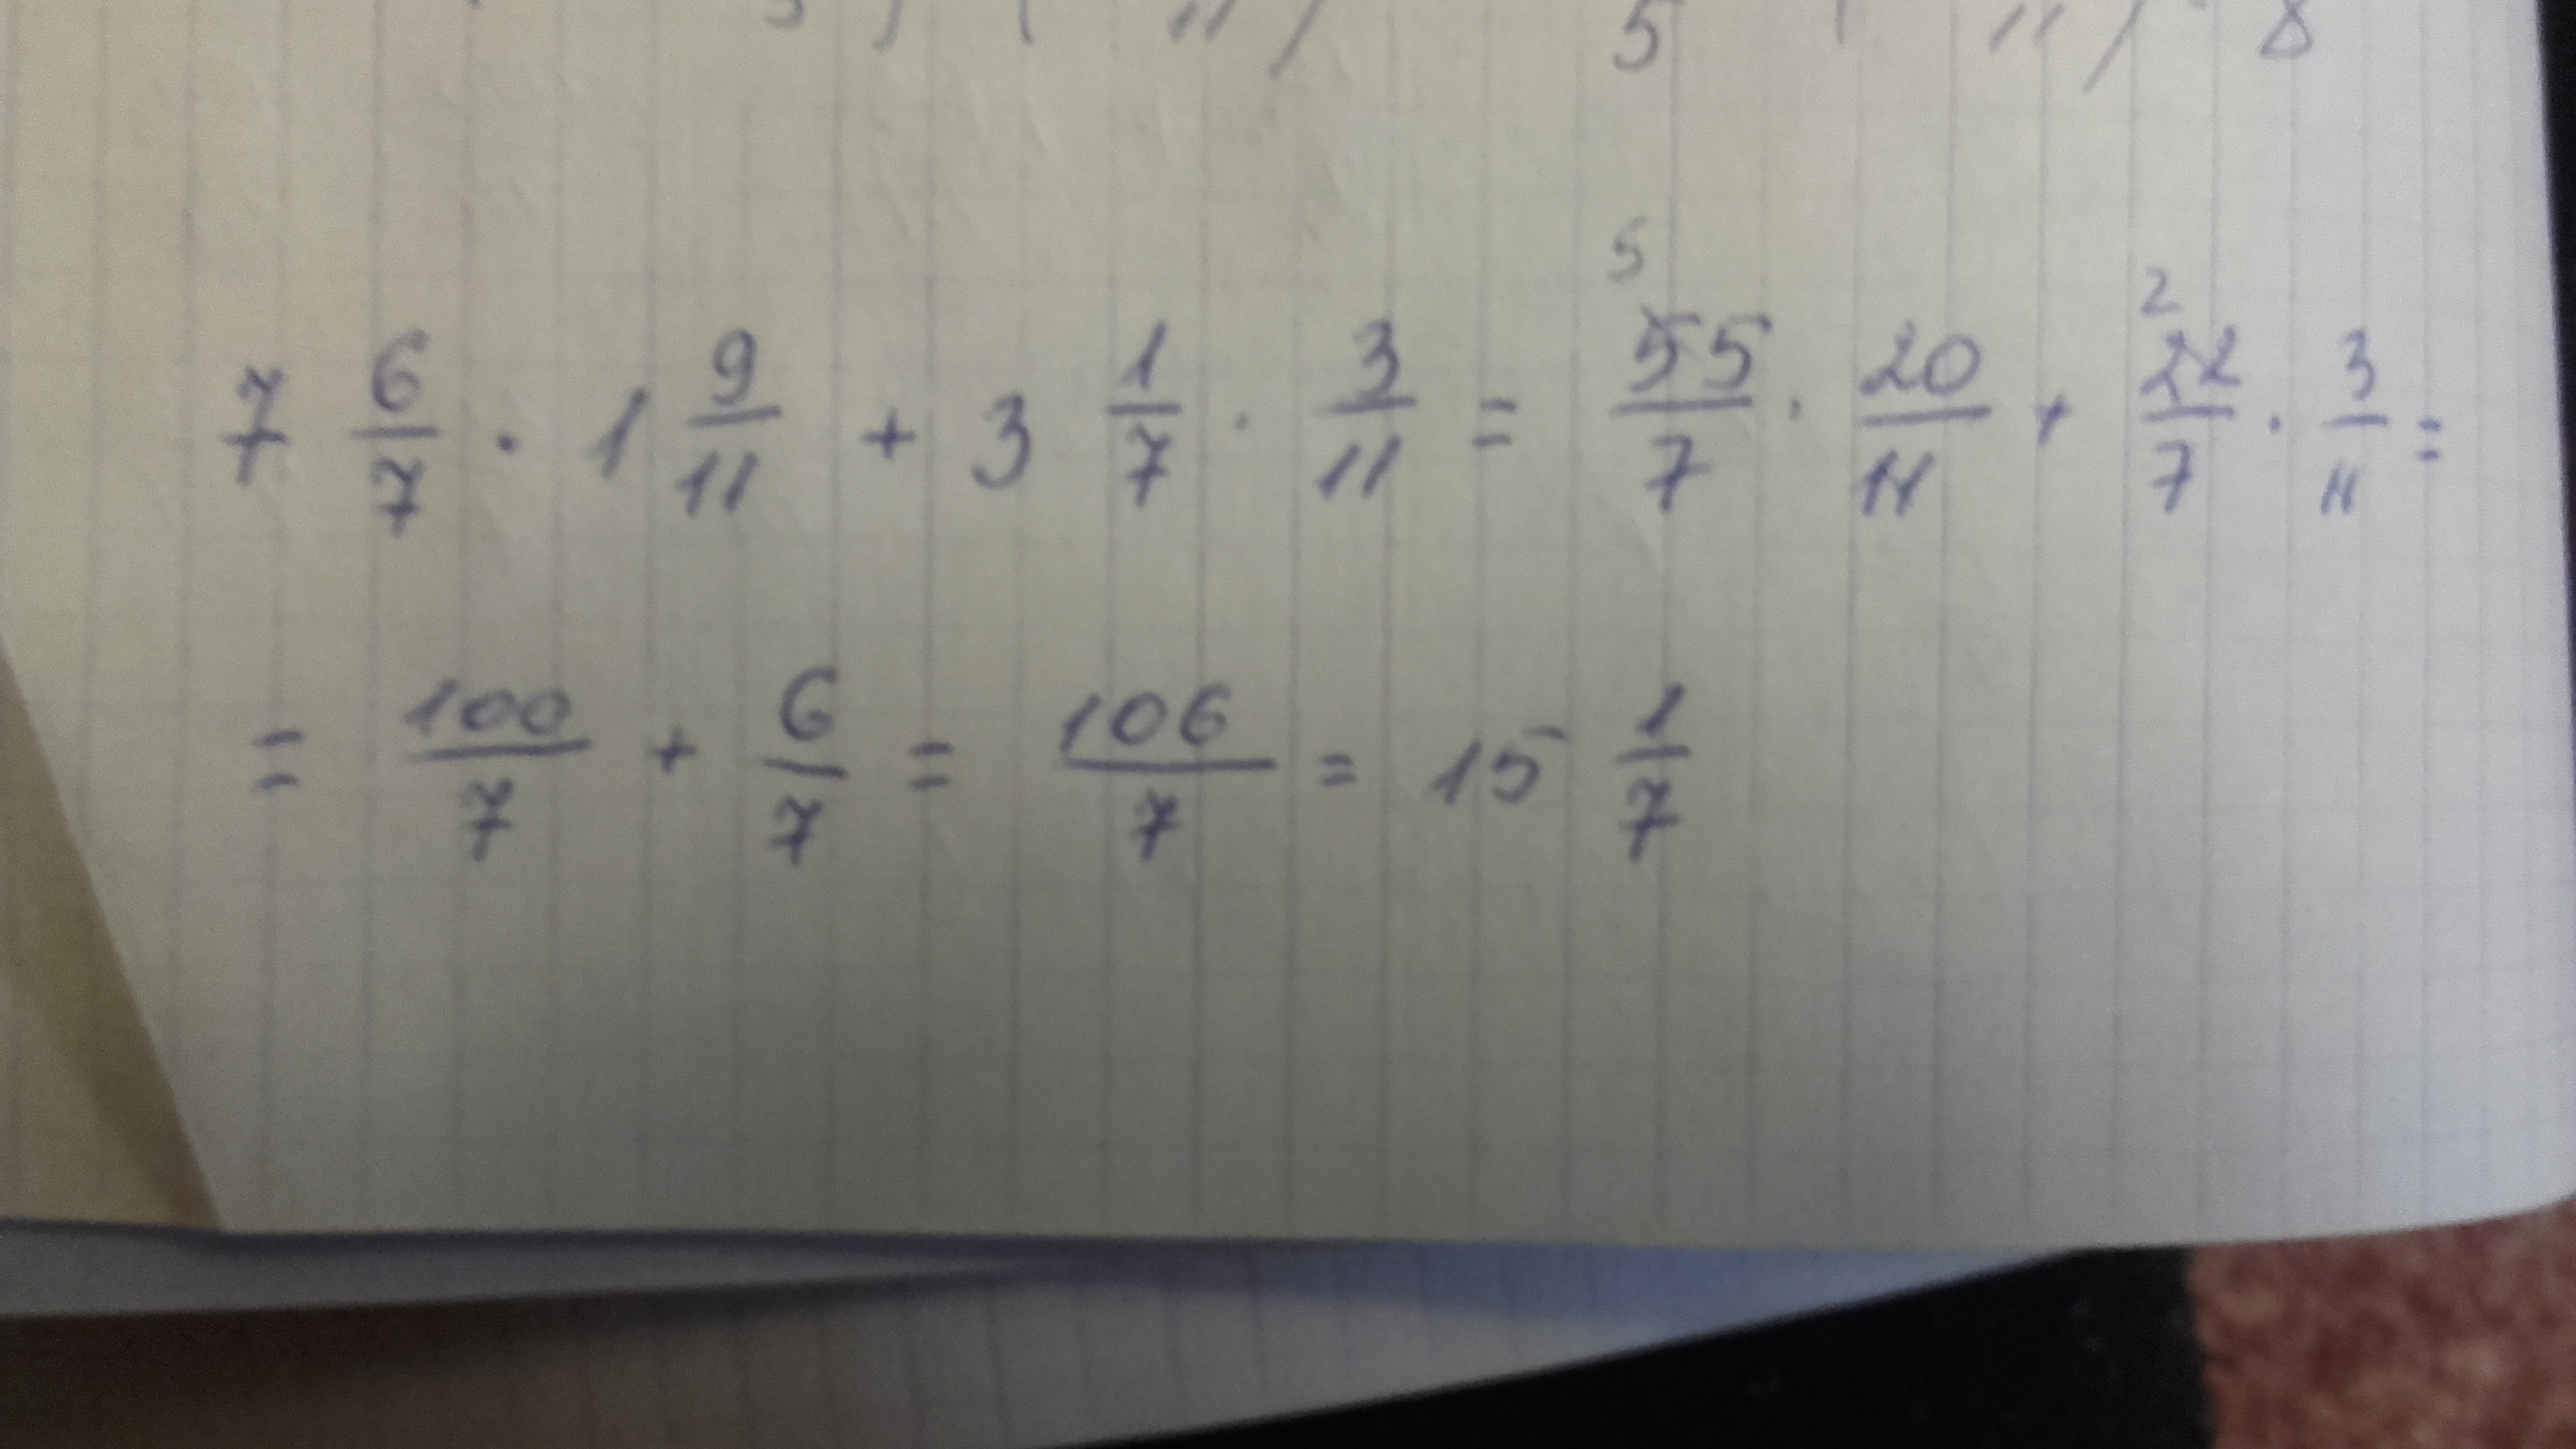 5 8
7 6/7 · 1 9/11 + 3 1/7 · 3/11 = 5 55/7 · 20/11 + 2 22/7 · 3/11 =
= 100/7 + 6/7 = 106/7 = 15 1/7